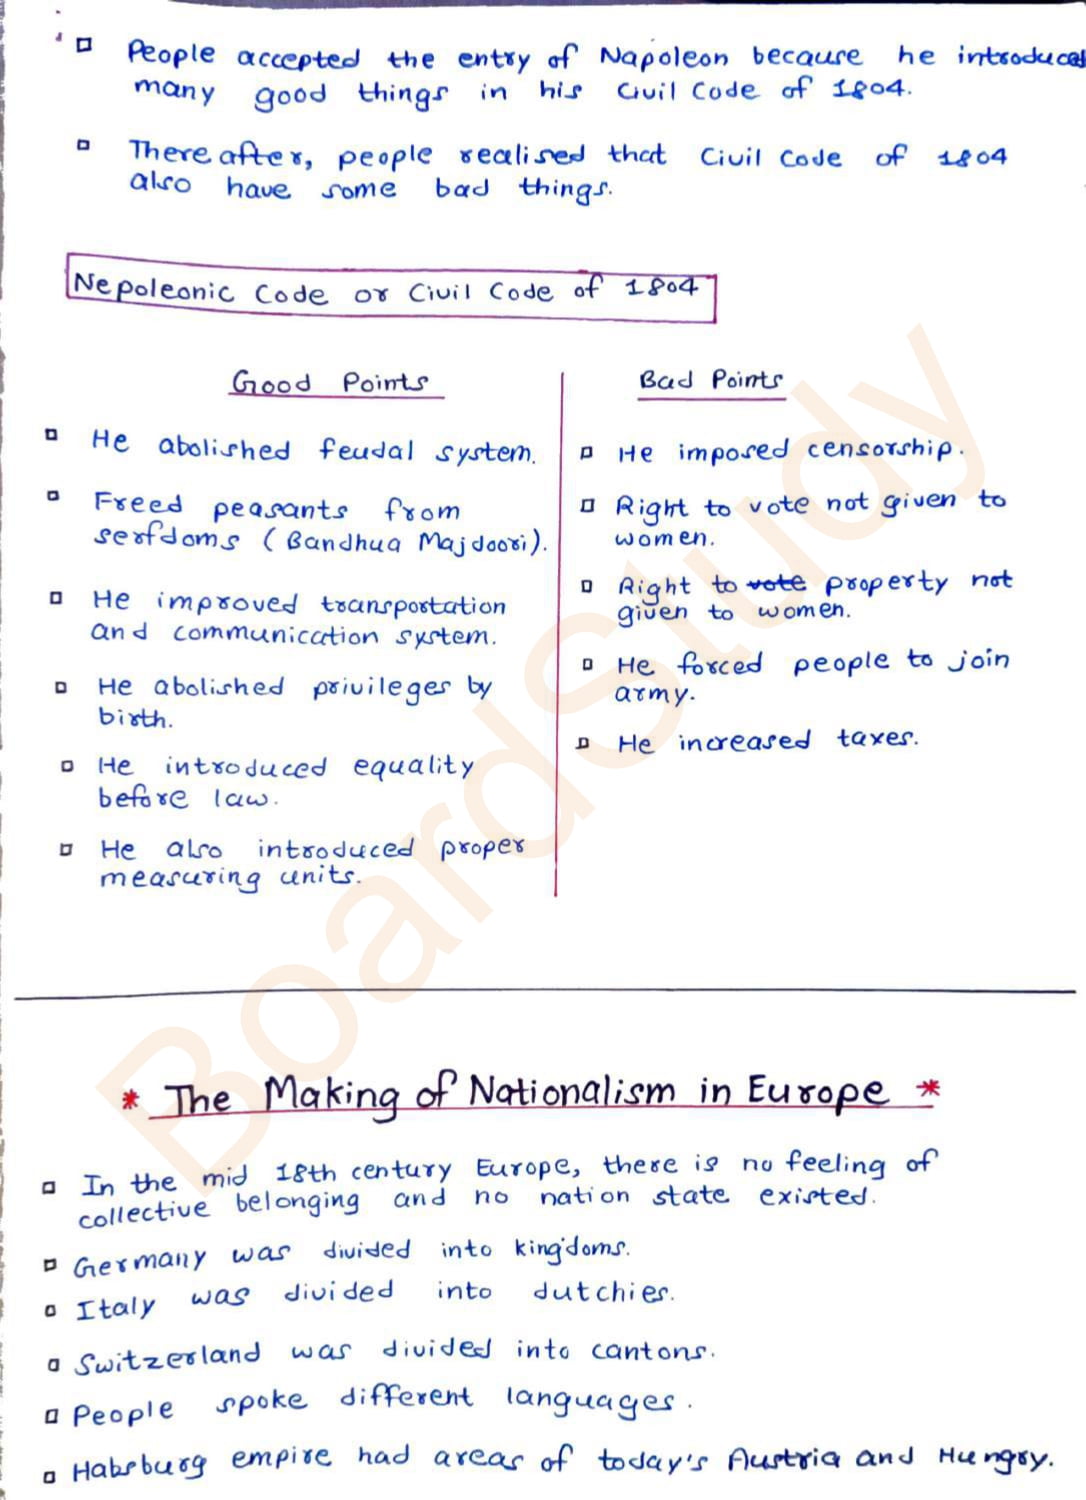 People accepted the entry of Napoleon because he introduced
many good things in his Civil Code of 1804.
There after, people realised that Civil Code of 1804
also have some bad things.
Nepoleonic Code or Civil Code of 1804
Good Points
He abolished feudal system.
Freed peasants from
serfdoms (Bandhua Majdoori).
He improved transportation
and communication system.
He abolished privileges by
birth.
He introduced equality
before law.
He also introduced proper
measuring units.
Bad Points
He imposed censorship.
Right to vote not given to
women.
Right to vote property not
given to women.
He forced people to join
army.
He increased taxes.
* The Making of Nationalism in Europe *
In the mid 18th century Europe, there is no feeling of
collective belonging and no nation state existed.
Germany was divided into kingdoms.
Italy was divided into dutchies.
Switzerland was divided into cantons.
People spoke different languages.
Habsburg empire had areas of today's Austria and Hungry.
BoardStudy